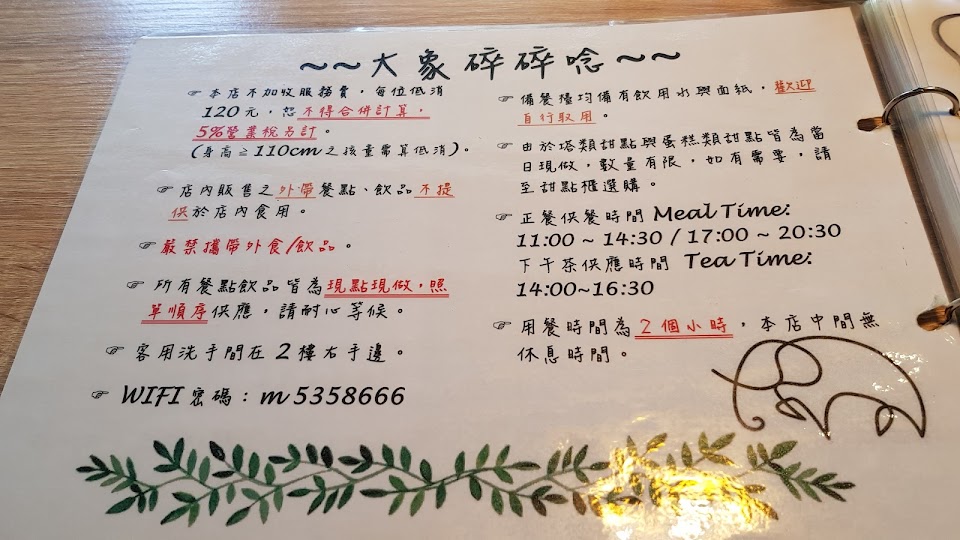 ～～大象碎碎唸～～
☞ 本店不加收服務費，每位低消
120元，恕不得合併計算，
5%營業稅另計。
(身高≧110cm之孩童需算低消)。
☞ 店內販售之外帶餐點、飲品不提
供於店內食用。
☞ 嚴禁攜帶外食/飲品。
☞ 所有餐點飲品皆為現點現做，照
單順序供應，請耐心等候。
☞ 客用洗手間在2樓右手邊。
☞ WIFI密碼：m5358666
☞ 備餐檯均備有飲用水與面紙，歡迎
自行取用。
☞ 由於塔類甜點與蛋糕類甜點皆為當
日現做，數量有限，如有需要，請
至甜點櫃選購。
☞ 正餐供餐時間 Meal Time:
11:00 ~ 14:30 / 17:00 ~ 20:30
下午茶供應時間 Tea Time:
14:00~16:30
☞ 用餐時間為2個小時，本店中間無
休息時間。